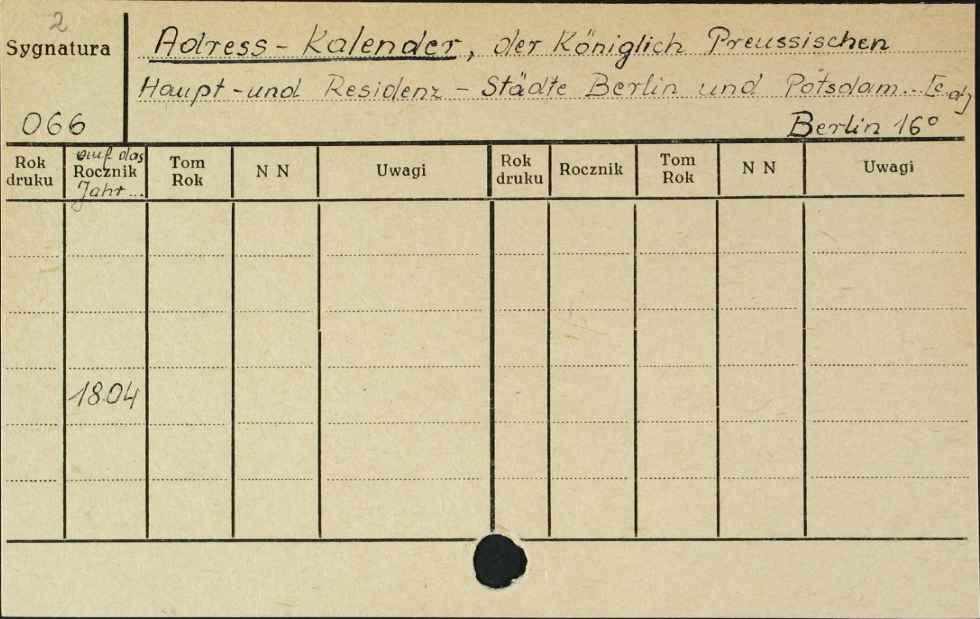 2
Sygnatura
Adress - Kalender, der Königlich Preussischen
Haupt - und Residenz - Städte Berlin und Potsdam...
066
Berlin 16°
Rok druku
auf das Rocznik Jahr...
Tom Rok
N N
Uwagi
Rok druku
Rocznik
Tom Rok
N N
Uwagi
1804